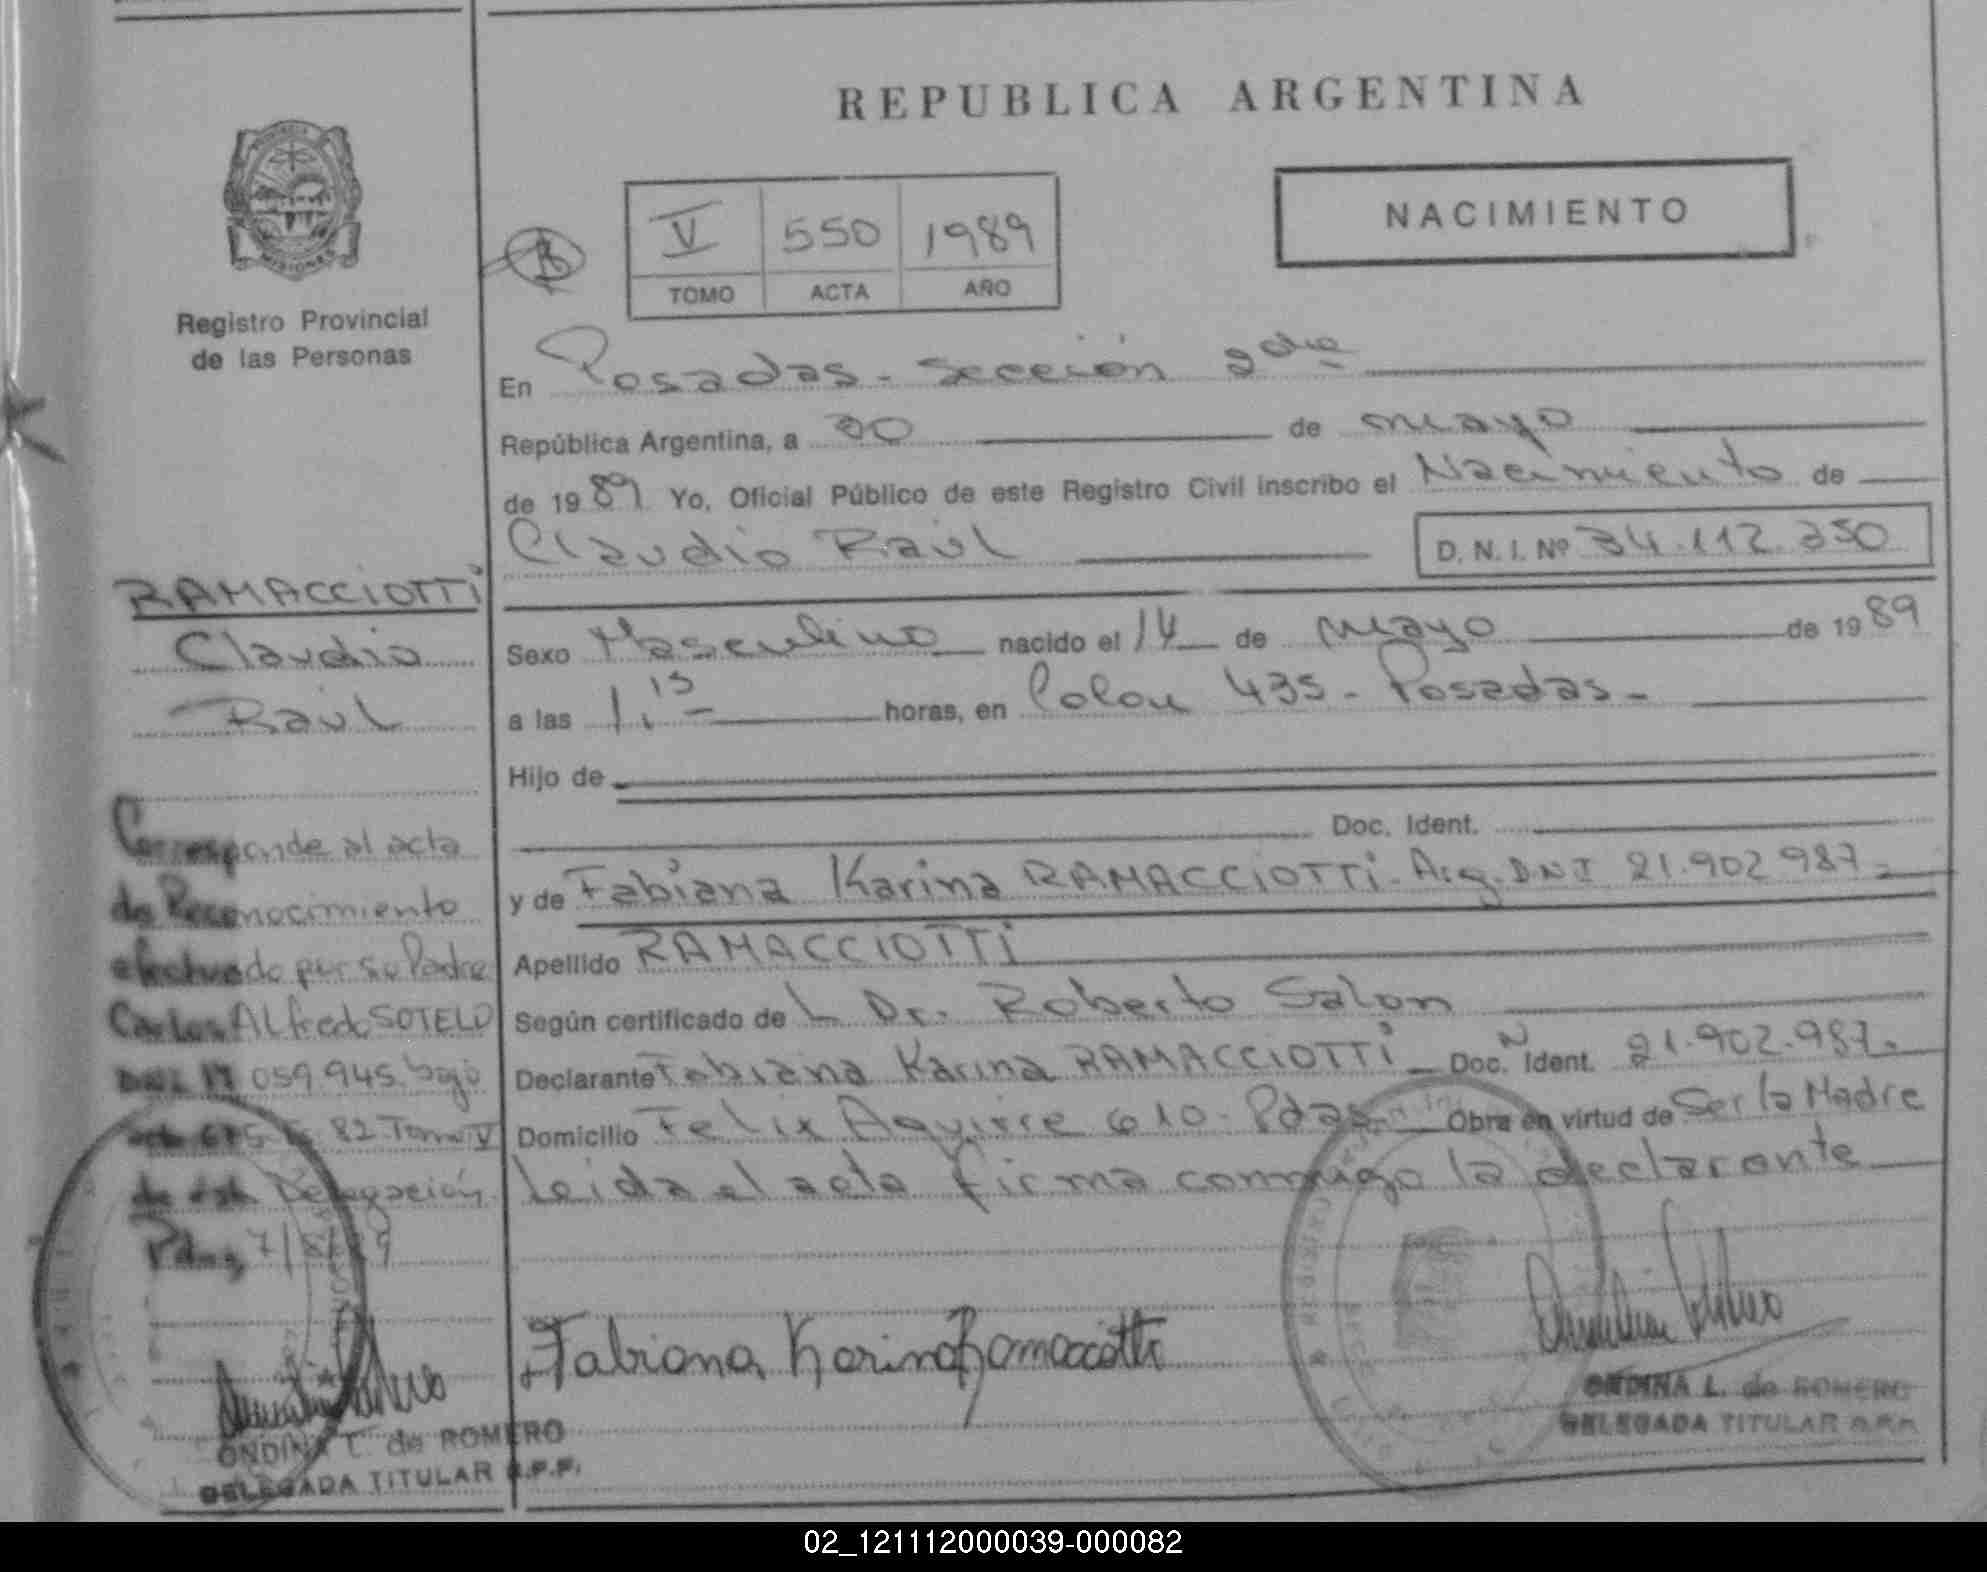 REPUBLICA ARGENTINA
NACIMIENTO
V 550 1989
TOMO ACTA AÑO
PROVINCIA
MISIONES
Registro Provincial
de las Personas
RAMACCIOTTI
Claudio
Raúl
Corresponde al acta
de Reconocimiento
efectuado por su Padre
Carlos Alfredo SOTELO
DNI. 17 059.945. bajo
82 Tomo V
de esta Delegación.
Pdas, 7/8/89
ONDINA L. de ROMERO
DELEGADA TITULAR R.P.P.
En Posadas - Sección 2da
República Argentina, a 30 de mayo
de 1989 Yo, Oficial Público de este Registro Civil inscribo el Nacimiento de
Claudio Raúl D.N.I. Nº 34.112.350
Sexo Masculino nacido el 14 de mayo de 1989
a las 1,15 horas, en Colon 435 - Posadas -
Hijo de
Doc. Ident.
y de Fabiana Karina RAMACCIOTTI - Arg. DNI 21.902.987 -
Apellido RAMACCIOTTI
Según certificado de L Dr. Roberto Salon
Declarante Fabiana Karina RAMACCIOTTI Doc. N Ident. 21.902.987.
Domicilio Felix Aguirre 610 - Pdas. Obra en virtud de Ser la Madre
Leida el acta firma conmigo la declarante
Fabiana Karina Ramacciotti
ONDINA L. de ROMERO
DELEGADA TITULAR R.P.P.
02_121112000039-000082